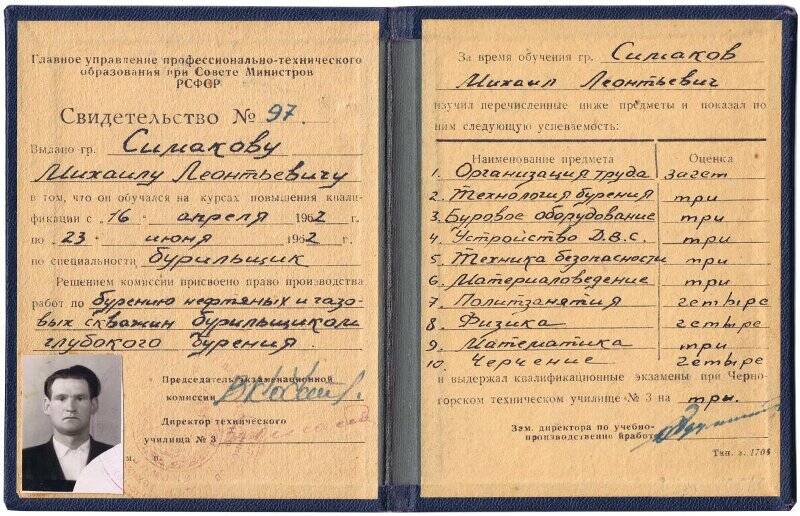 Главное управление профессионально-технического
образования при Совете Министров
РСФСР
Свидетельство № 97.
Выдано гр. Симакову
Михаилу Леонтьевичу
в том, что он обучался на курсах повышения квали-
фикации с „16“ апреля 1962 г.
по „23“ июня 1962 г.
по специальности бурильщик
Решением комиссии присвоено право производства
работ по бурению нефтяных и газо-
вых скважин бурильщиком
глубокого бурения.
Председатель экзаменационной
комиссии
Директор технического
училища № 3
м. п.
За время обучения гр. Симаков
Михаил Леонтьевич
изучил перечисленные ниже предметы и показал по
ним следующую успеваемость:
Наименование предмета Оценка
1. Организация труда зачет
2. Технология бурения три
3. Буровое оборудование три
4. Устройство Д.В.С. три
5. Техника безопасности три
6. Материаловедение три
7. Политзанятия четыре
8. Физика четыре
9. Математика три
10. Черчение четыре
и выдержал квалификационные экзамены при Черно-
горском техническом училище № 3 на три.
Зам. директора по учебно-
производственной работе
Тип. з. 1704